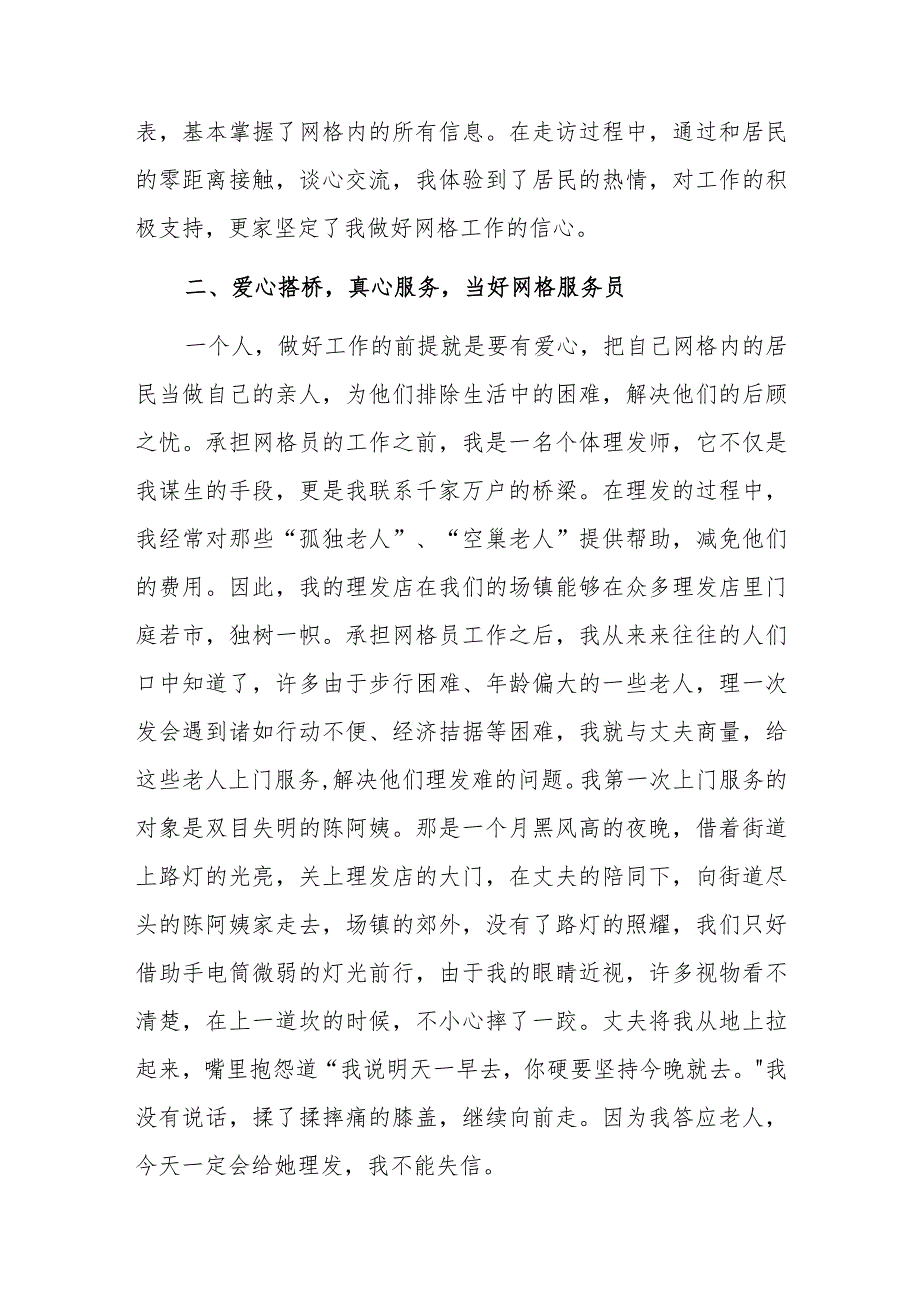 表，基本掌握了网格内的所有信息。在走访过程中，通过和居民
的零距离接触，谈心交流，我体验到了居民的热情，对工作的积
极支持，更家坚定了我做好网格工作的信心。
二、爱心搭桥，真心服务，当好网格服务员
一个人，做好工作的前提就是要有爱心，把自己网格内的居
民当做自己的亲人，为他们排除生活中的困难，解决他们的后顾
之忧。承担网格员的工作之前，我是一名个体理发师，它不仅是
我谋生的手段，更是我联系千家万户的桥梁。在理发的过程中，
我经常对那些“孤独老人”、“空巢老人”提供帮助，减免他们
的费用。因此，我的理发店在我们的场镇能够在众多理发店里门
庭若市，独树一帜。承担网格员工作之后，我从来来往往的人们
口中知道了，许多由于步行困难、年龄偏大的一些老人，理一次
发会遇到诸如行动不便、经济拮据等困难，我就与丈夫商量，给
这些老人上门服务,解决他们理发难的问题。我第一次上门服务的
对象是双目失明的陈阿姨。那是一个月黑风高的夜晚，借着街道
上路灯的光亮，关上理发店的大门，在丈夫的陪同下，向街道尽
头的陈阿姨家走去，场镇的郊外，没有了路灯的照耀，我们只好
借助手电筒微弱的灯光前行，由于我的眼睛近视，许多视物看不
清楚，在上一道坎的时候，不小心摔了一跤。丈夫将我从地上拉
起来，嘴里抱怨道“我说明天一早去，你硬要坚持今晚就去。"我
没有说话，揉了揉摔痛的膝盖，继续向前走。因为我答应老人，
今天一定会给她理发，我不能失信。